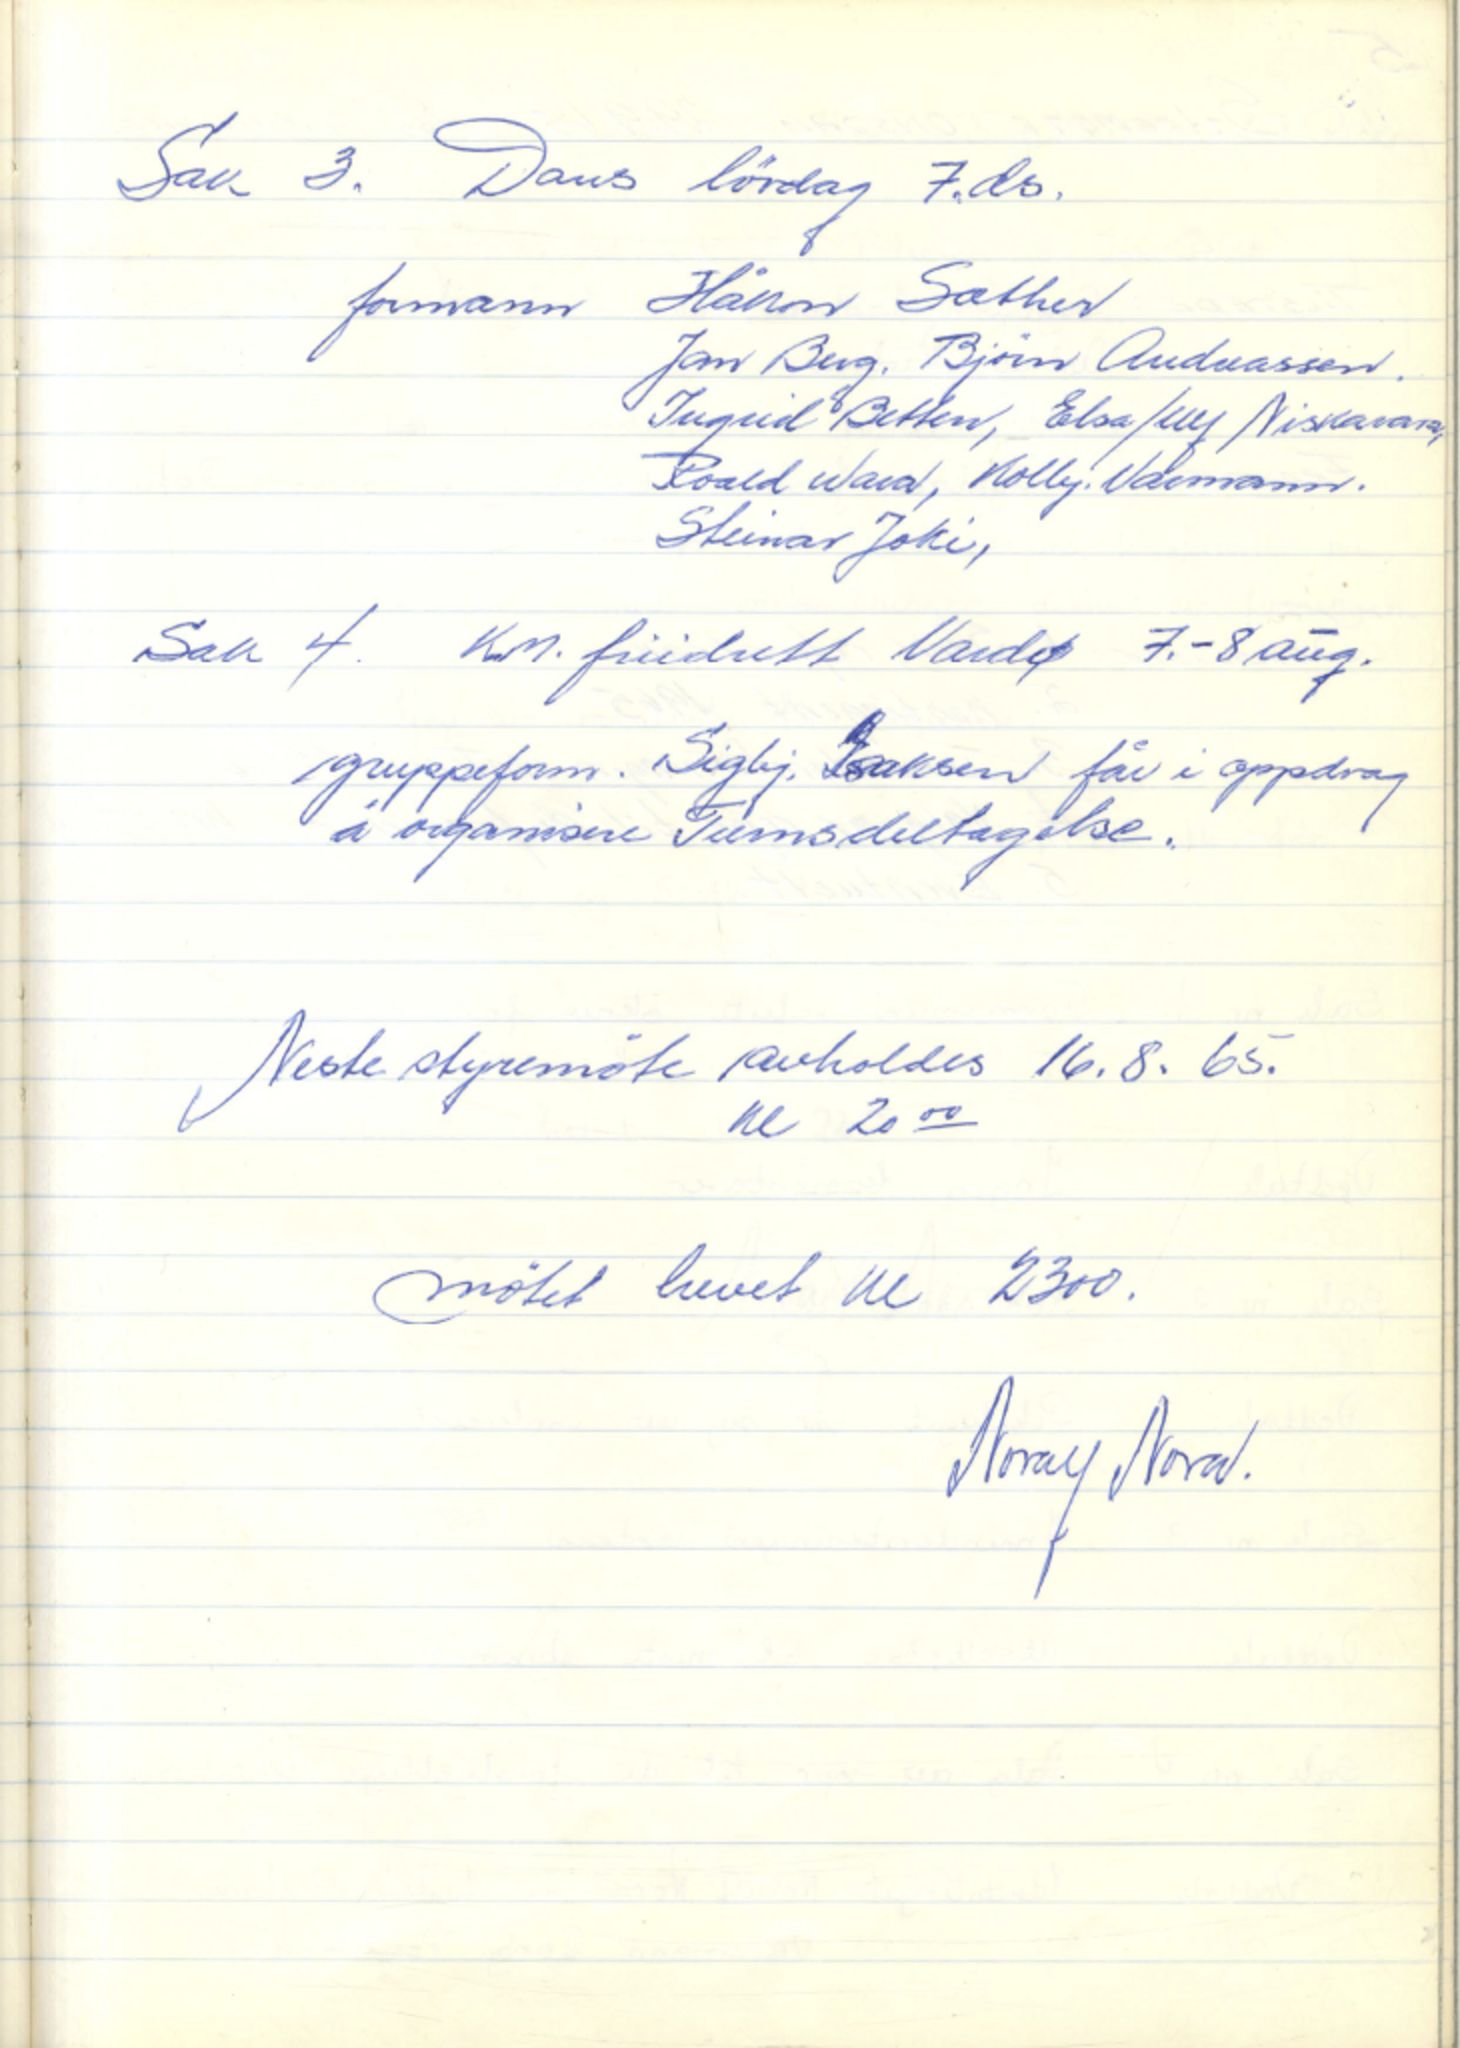 Sak 3. Dans lördag 7. ds.
formann Håkon Sæther
Jan Berg. Björn Andreassen.
Ingrid Betten, Elsa/Ulf Niskavara,
Roald Wara, Kolbj. Varmann.
Steinar Joki,
Sak 4. K.M. friidrett Vardø 7.-8 aug.
gruppeform. Sigbj. Isaksen får i oppdrag
å organisere Turnsdeltagelse.
Neste styremöte avholdes 16.8.65.
kl 20 00
mötet hevet kl 2300.
Noralf Nora.